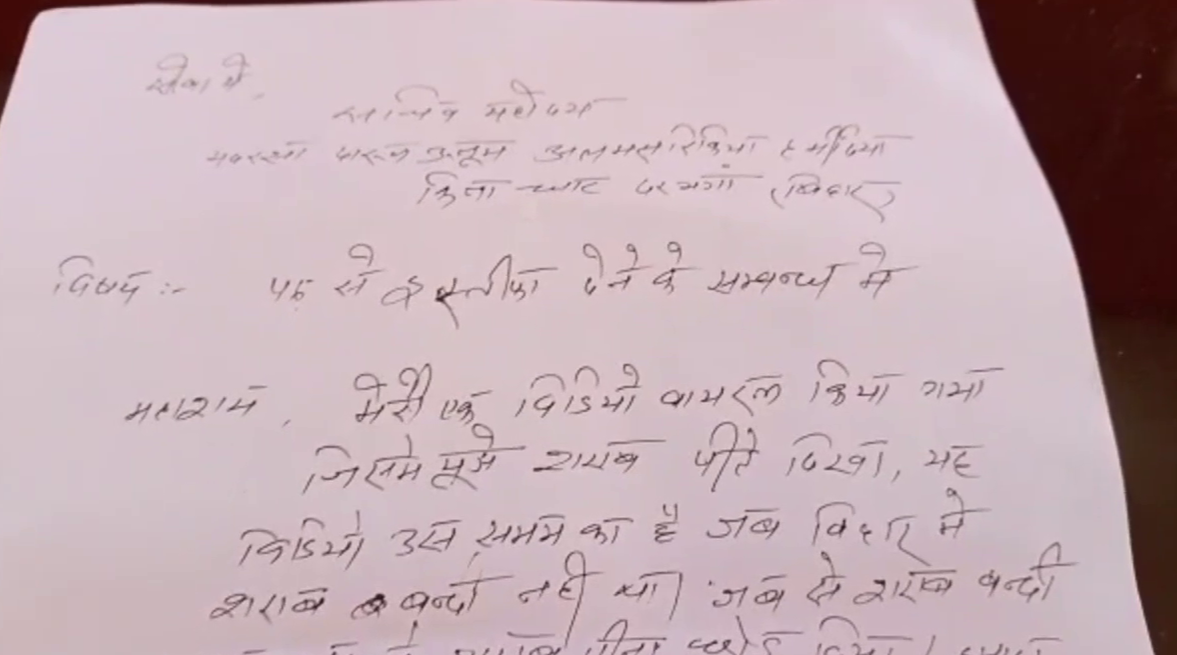 सेवा में,
सचिव महोदय
मदरसा दारुल उलूम
किला घाट दरभंगा (बिहार)
विषय :- पद से इस्तीफा देने के सम्बन्ध में
महाशय, मेरी एक विडियो वायरल किया गया
जिसमे मूझे शराब पीते दिखा, यह
विडियो उस समय का है जब बिहार मे
शराब बन्दी नही था। जब से शराब बन्दी
शराब पीना छोड़ दिया।